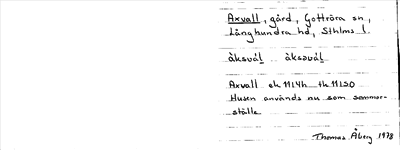 Axvall, gård, Gottröra sn,
Långhundra hd, Sthlms l.
àksvál̲ àksəvál̲
Axvall ek 11I4h tk 11I30
Husen används nu som sommar-
ställe
Thomas Åberg 1978